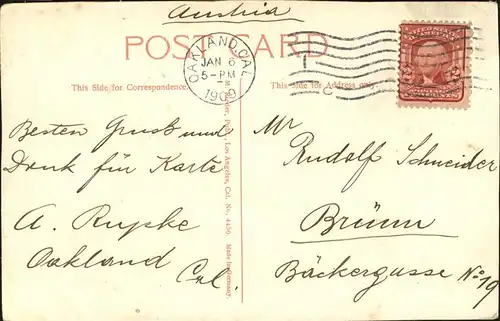 Austria
POST CARD
OAKLAND, CAL.
JAN 6
5-PM
1909
This Side for Correspondence.
This Side for Address only.
Besten Gruss und
Dank für Karte
A. Rupke
Oakland
Cal.
Publ., Los Angeles, Cal. No. 4450. Made in Germany.
Mr
Rudolf Schneider
Brünn
Bäckergasse No 19